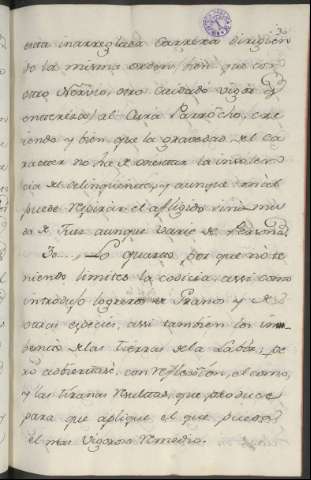 esta inarreglada Carrera dirigien
do la misma orden, bien que con
otro Nervio, otro cuidado vigor y
entereza, al Cura Parrocho, cre
iendo y bien, que la gravedad del ca
racter no ha de aumentar la insolen
cia del delinquente, y aunque
puede respirar el afligido si no mu
da de Juez aunque varie de Persona.
30..., Lo quarto, por que no te
niendo limites la codicia, assi como
introdujo logreros de Granos y de
otras especies, assi tambien los in
de las tierras de la Labor, pe
ro adviertase con reflexion, el como,
y las tiranas resultas, que produce
para que aplique el que pueda
el mas vigoroso remedio.